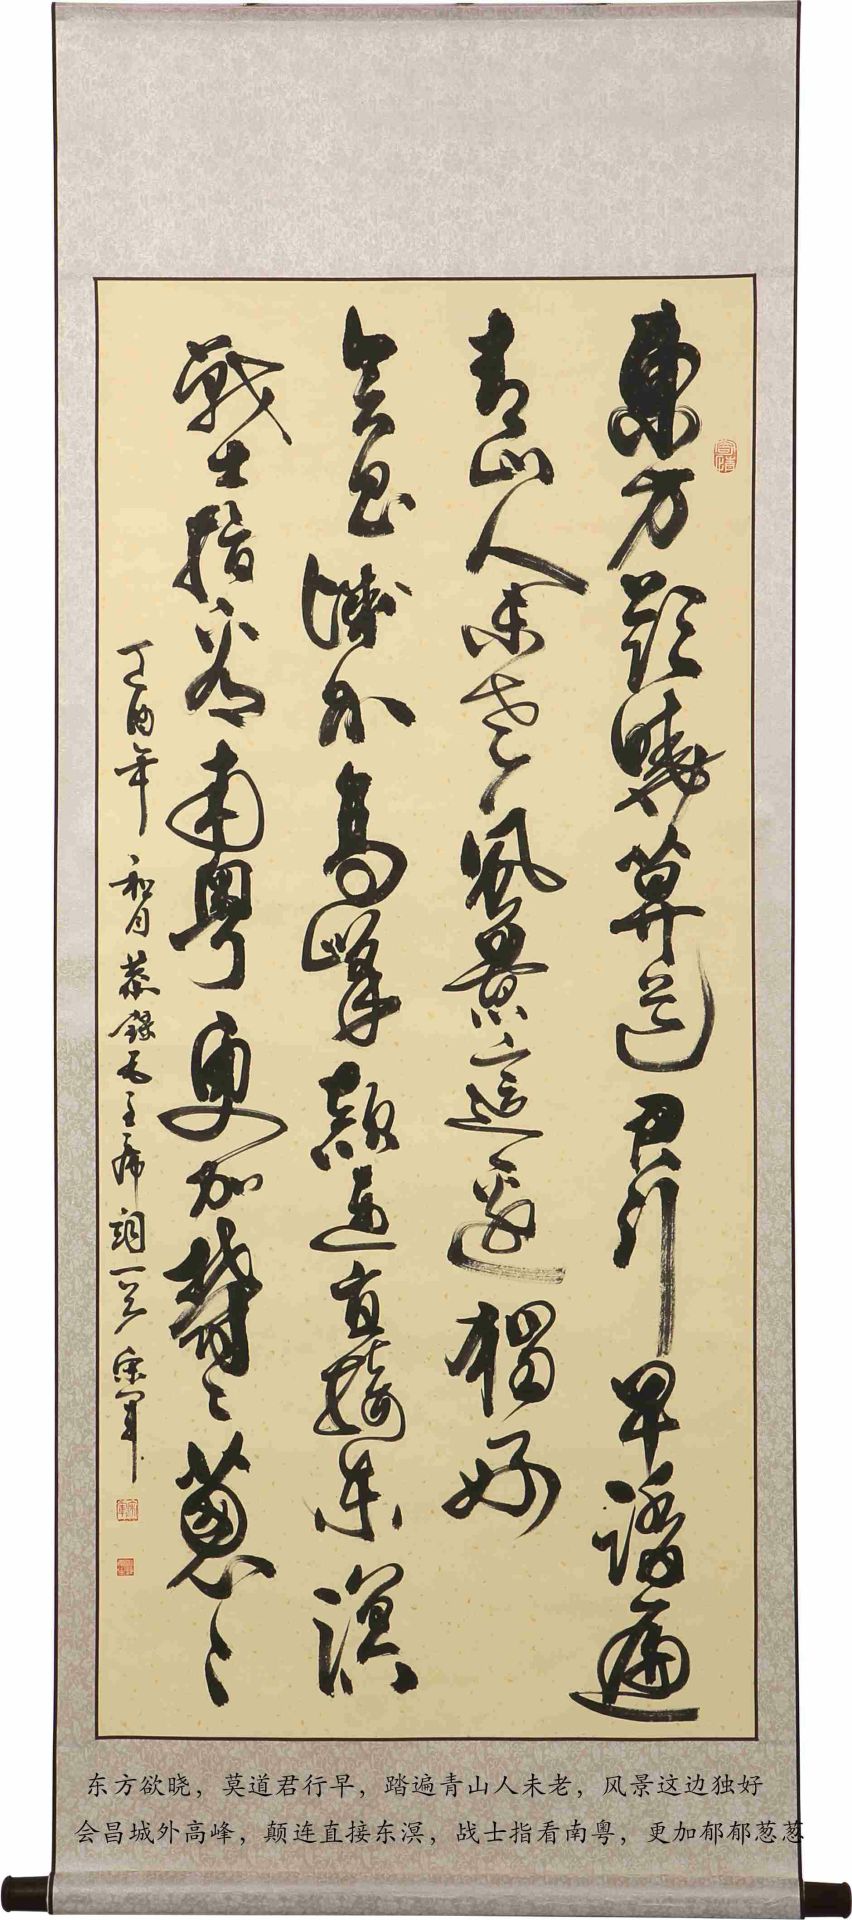 東方欲曉莫道君行早踏遍
青山人未老風景這邊獨好
會昌城外高峰顛連直接東溟
戰士指看南粵更加鬱々蔥々
丁酉年秋月恭錄毛主席詞一首
东方欲晓，莫道君行早，踏遍青山人未老，风景这边独好
会昌城外高峰，颠连直接东溟，战士指看南粤，更加郁郁葱葱